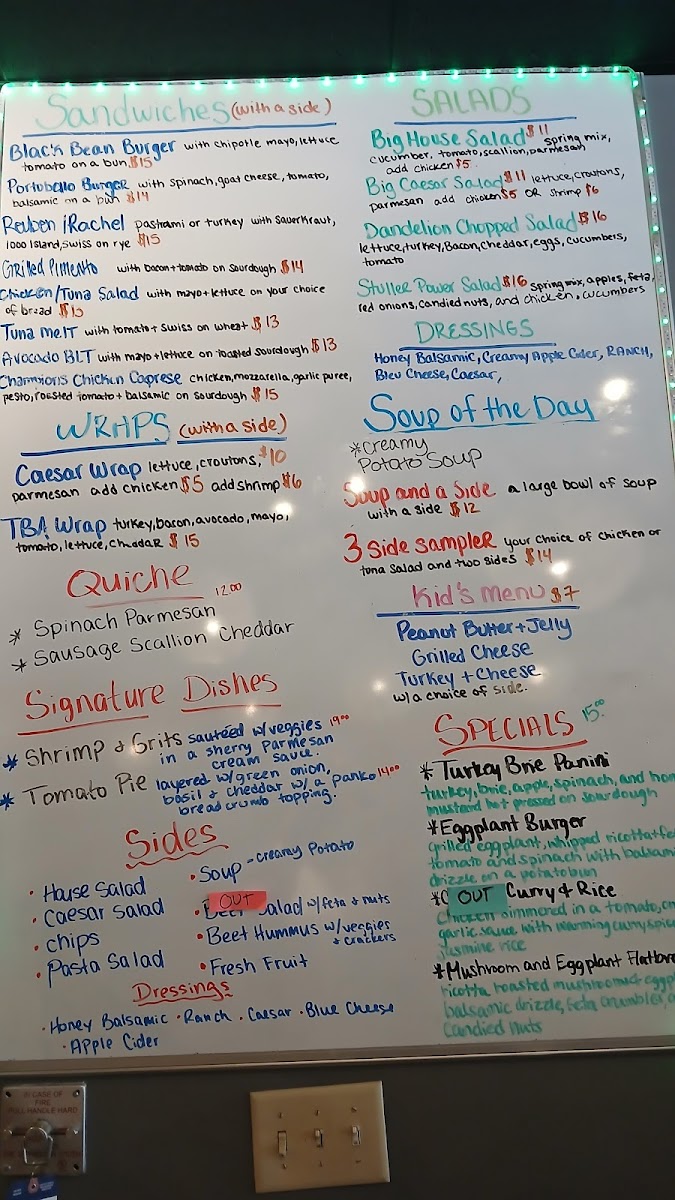 Sandwiches (with a side)
Black Bean Burger with chipotle mayo, lettuce
tomato on a bun $15
Portobello Burger with spinach, goat cheese, tomato,
balsamic on a bun $14
Reuben /Rachel pastrami or turkey with sauerkraut,
1000 Island, swiss on rye $15
Grilled Pimento with bacon + tomato on sourdough $14
Chicken/Tuna Salad with mayo + lettuce on your choice
of bread
Tuna melt with tomato + swiss on wheat $13
Avocado BLT with mayo + lettuce on toasted sourdough $13
Champions Chicken Caprese chicken, mozzarella, garlic puree,
pesto, roasted tomato + balsamic on sourdough $15
WRAPS (with a side)
Caesar Wrap lettuce, croutons, $10
parmesan add chicken $5 add shrimp $6
TBA Wrap turkey, bacon, avocado, mayo,
tomato, lettuce, cheddar $15
Quiche 12.00
* Spinach Parmesan
* Sausage Scallion Cheddar
Signature Dishes
* Shrimp & Grits sautéed w/veggies 19.00
in a sherry parmesan
cream sauce.
* Tomato Pie layered w/green onion,
basil & cheddar w/ a panko 14.00
bread crumb topping.
Sides
• House Salad
• Caesar Salad
• chips
• Pasta Salad
• Soup - creamy Potato
OUT Salad w/feta & nuts
• Beet Hummus w/veggies
& crackers
• Fresh Fruit
Dressings
• Honey Balsamic • Ranch • Caesar • Blue Cheese
• Apple Cider
SALADS
Big House Salad $11 spring mix,
cucumber, tomato, scallion, parmesan
add chicken $5
Big Caesar Salad $11 lettuce, croutons,
parmesan add chicken $5 OR shrimp $6
Dandelion Chopped Salad $16
lettuce, turkey, Bacon, cheddar, eggs, cucumbers,
tomato
Power Salad $16 spring mix, apples, feta,
red onions, candied nuts, and chicken, cucumbers
DRESSINGS
Honey Balsamic, Creamy Apple Cider, RANCH,
Bleu Cheese, Caesar,
Soup of the Day
* Creamy
Potato Soup
Soup and a Side a large bowl of soup
with a side $12
3 Side Sampler your choice of chicken or
tuna salad and two sides $14
Kid's menu $7
Peanut Butter + Jelly
Grilled Cheese
Turkey + Cheese
w/a choice of side.
SPECIALS 15.00
* Turkey Brie Panini
turkey, brie, apple, spinach, and
mustard hot pressed on sourdough
* Eggplant Burger
grilled eggplant, whipped ricotta + fe
tomato and spinach with balsam
drizzle on a potato bun
* OUT Curry & Rice
Chicken simmered in a tomato,
garlic sauce with warming curry
Jasmine rice
* Mushroom and Eggplant
ricotta roasted mushroom +
balsamic drizzle, feta crumbles,
candied nuts
IN CASE OF
FIRE
PULL HANDLE HARD